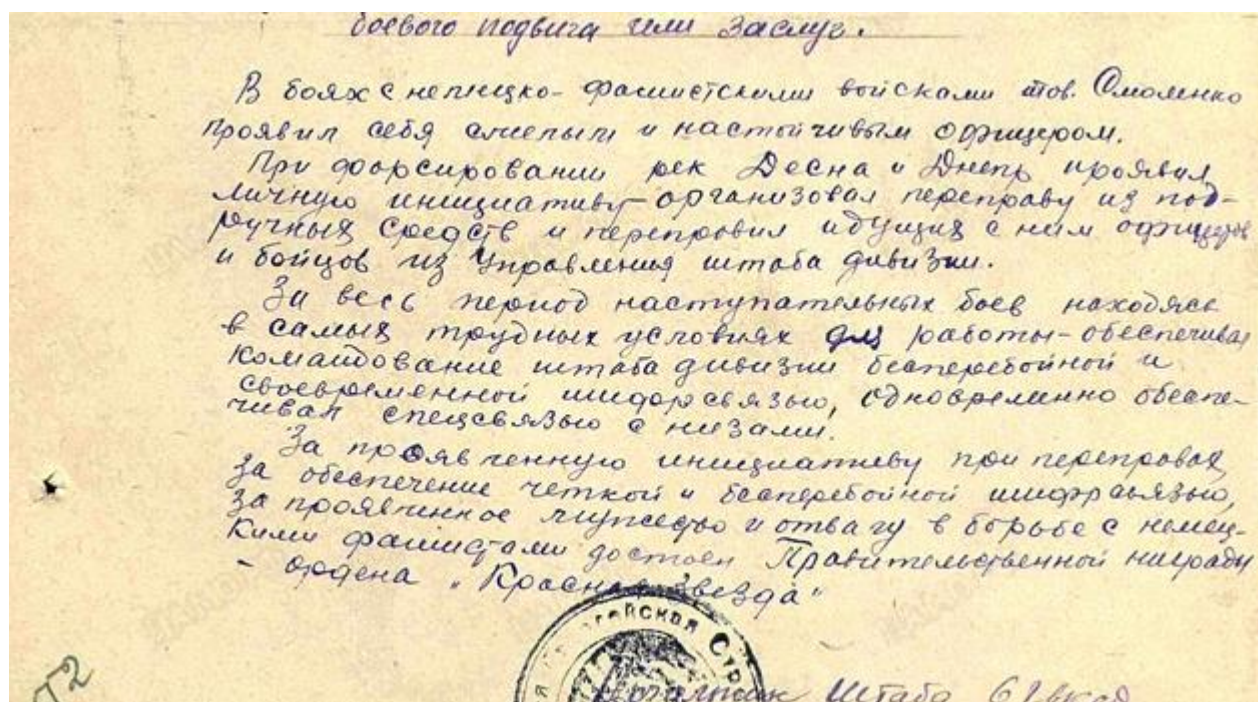 боевого подвига или заслуг.
В боях с немецко-фашистскими войсками тов. Смоленко
проявил себя смелым и настойчивым офицером.
При форсировании рек Десна и Днепр проявил
личную инициативу-организовал переправу из под-
ручных средств и переправил идущих с ним офицеров
и бойцов из Управления штаба дивизии.
За весь период наступательных боев находясь
в самых трудных условиях для работы-обеспечивал
командование штаба дивизии бесперебойной и
своевременной шифрсвязью, одновременно обеспе-
чивал спецсвязью с низами.
За проявленную инициативу при переправах,
за обеспечение четкой и бесперебойной шифрсвязью,
за проявленное мужество и отвагу в борьбе с немец-
кими фашистами достоен Правительственной награды
- ордена "Красная Звезда"
Штаба